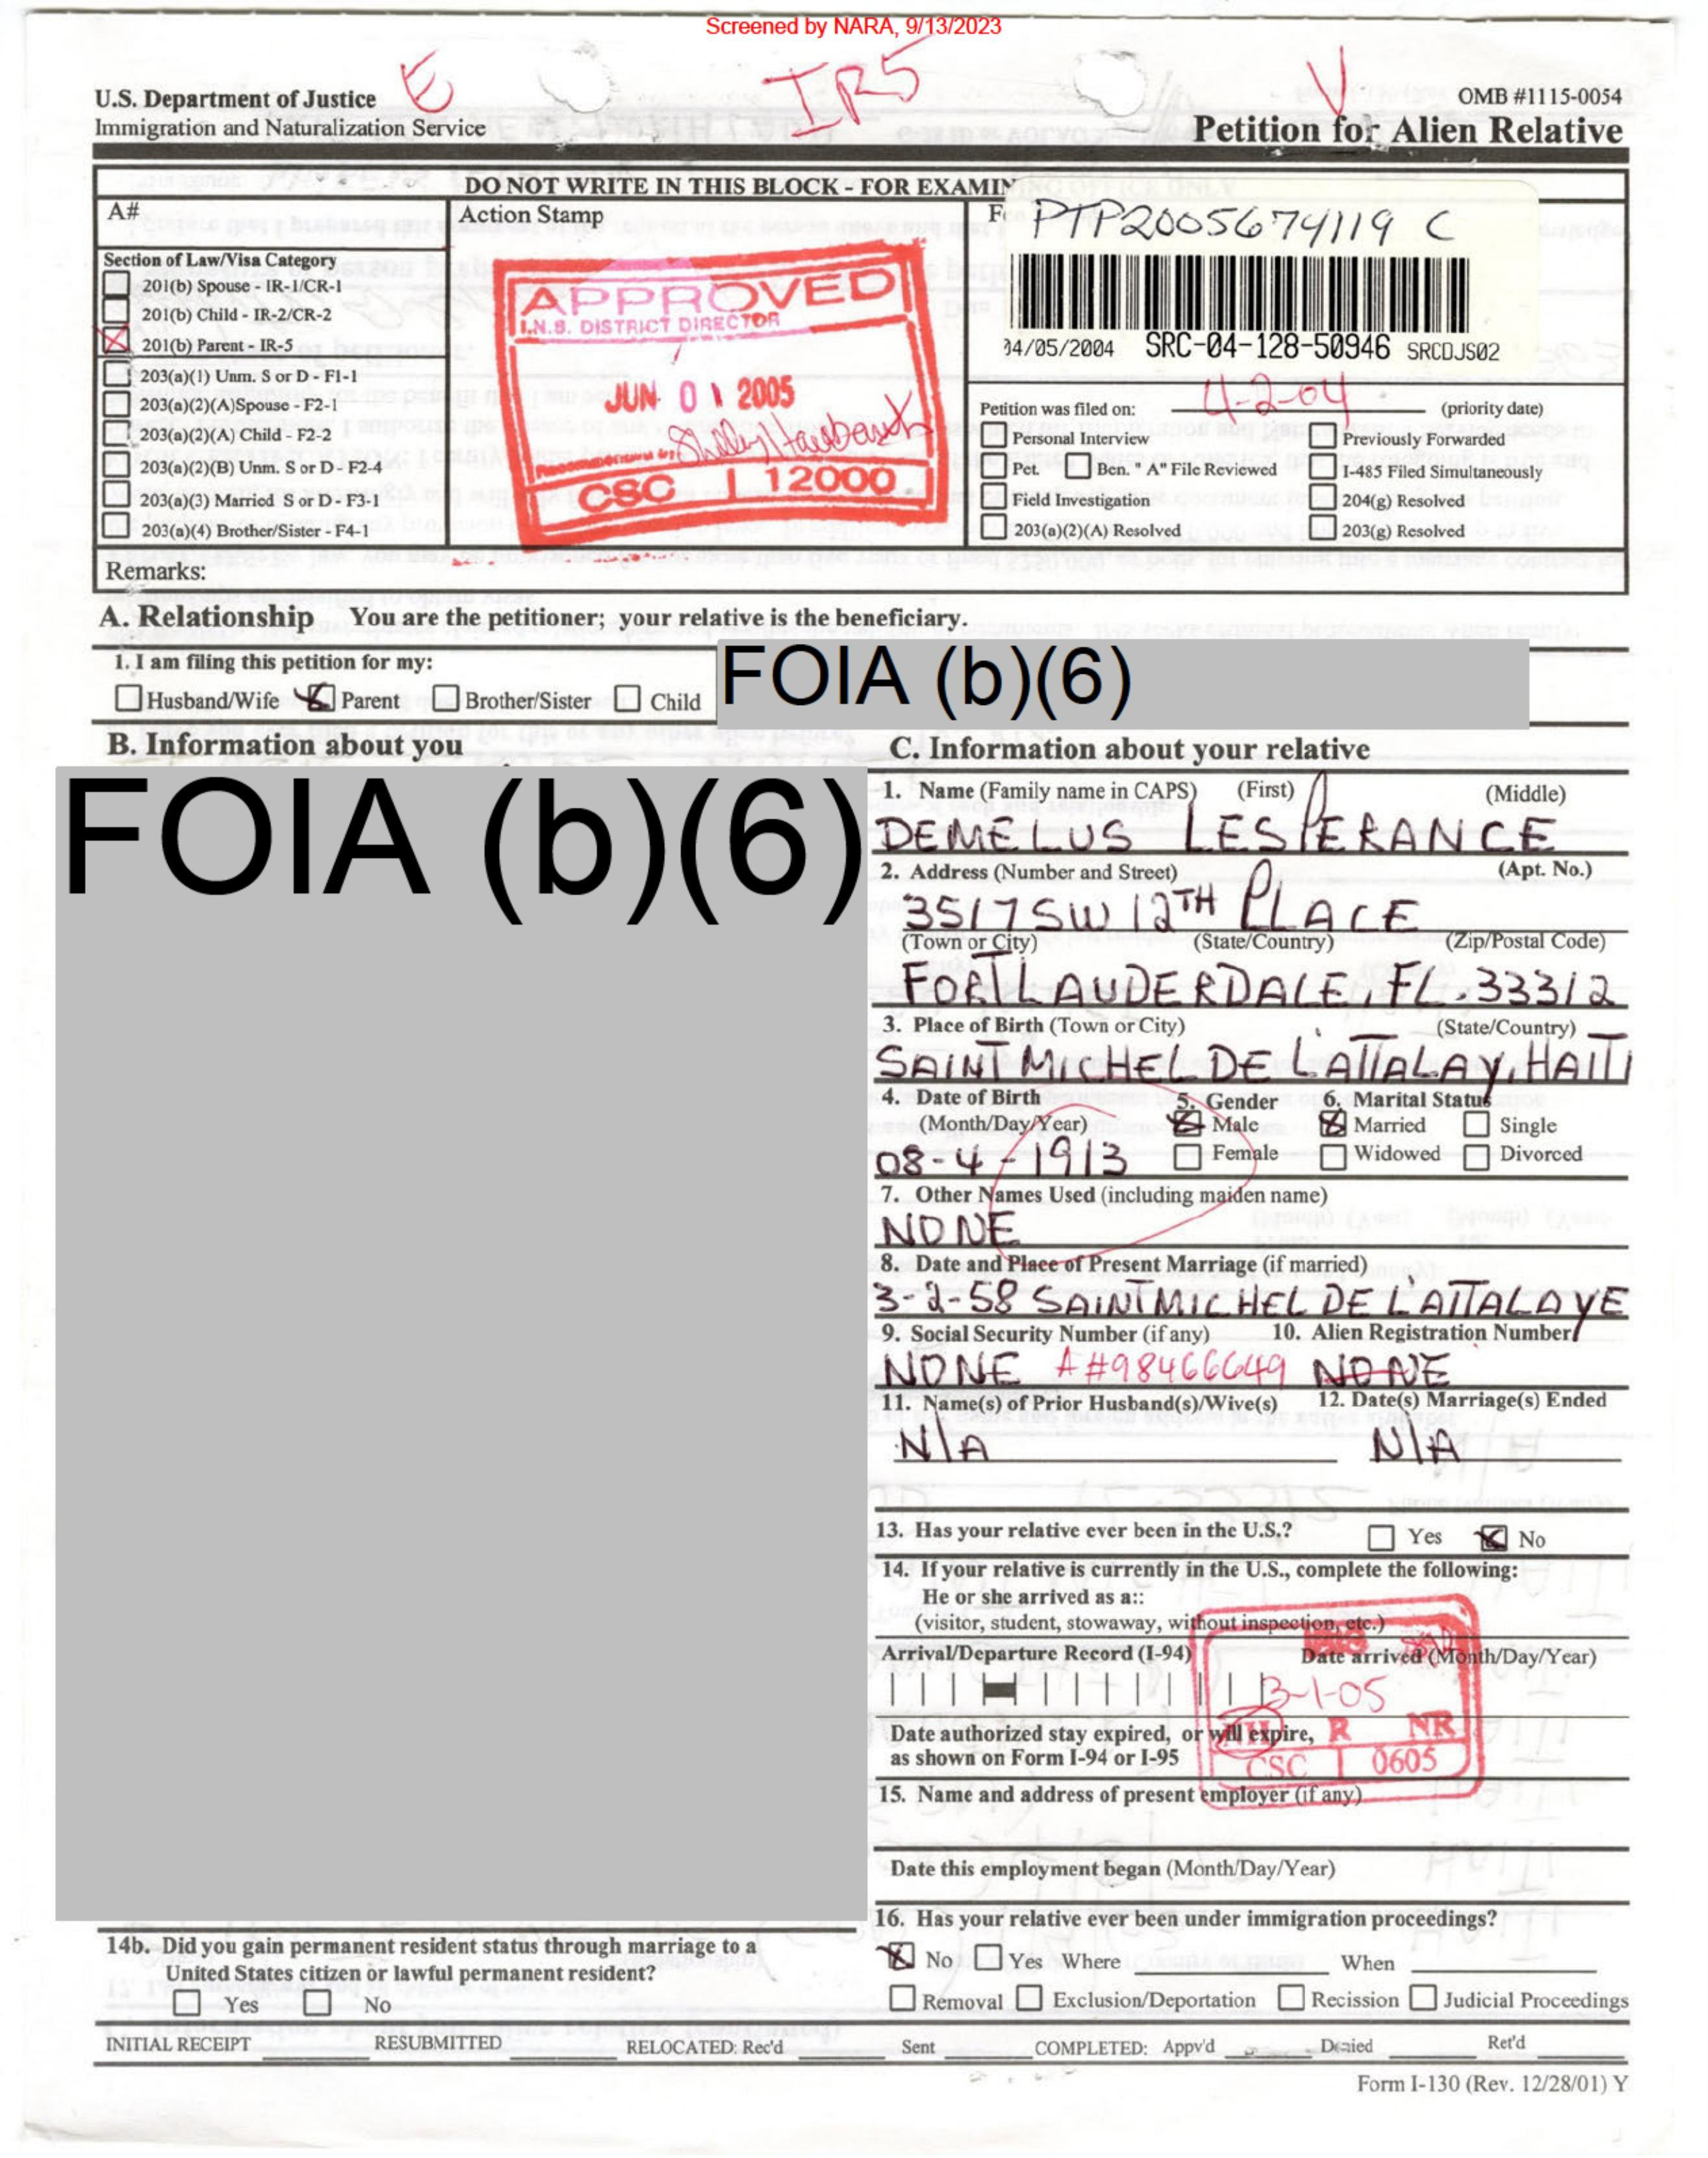 Screened by NARA, 9/13/2023
E
IR5
V
U.S. Department of Justice
Immigration and Naturalization Service
OMB #1115-0054
Petition for Alien Relative
DO NOT WRITE IN THIS BLOCK - FOR EXAMIN
A#
Action Stamp
PTP2005674119 C
Section of Law/Visa Category
201(b) Spouse - IR-1/CR-1
201(b) Child - IR-2/CR-2
201(b) Parent - IR-5
203(a)(1) Unm. S or D - F1-1
203(a)(2)(A)Spouse - F2-1
203(a)(2)(A) Child - F2-2
203(a)(2)(B) Unm. S or D - F2-4
203(a)(3) Married S or D - F3-1
203(a)(4) Brother/Sister - F4-1
APPROVED
I.N.S. DISTRICT DIRECTOR
JUN 01 2005
CSC 12000
04/05/2004 SRC-04-128-50946 SRCDJS02
Petition was filed on: 4-2-04 (priority date)
Personal Interview Previously Forwarded
Pet. Ben. " A" File Reviewed I-485 Filed Simultaneously
Field Investigation 204(g) Resolved
203(a)(2)(A) Resolved 203(g) Resolved
Remarks:
A. Relationship You are the petitioner; your relative is the beneficiary.
1. I am filing this petition for my:
Husband/Wife Parent Brother/Sister Child
FOIA (b)(6)
B. Information about you
FOIA (b)(6)
C. Information about your relative
1. Name (Family name in CAPS) (First) (Middle)
DEMELUS LESPERANCE
2. Address (Number and Street) (Apt. No.)
3517 SW 12TH PLACE
(Town or City) (State/Country) (Zip/Postal Code)
FORT LAUDERDALE, FL. 33312
3. Place of Birth (Town or City) (State/Country)
SAINT MICHEL DE L'ATTALAY, HAITI
4. Date of Birth 5. Gender 6. Marital Status
(Month/Day/Year) Male Married Single
08-4-1913 Female Widowed Divorced
7. Other Names Used (including maiden name)
NONE
8. Date and Place of Present Marriage (if married)
3-2-58 SAINT MICHEL DE L'ATTALAYE
9. Social Security Number (if any) 10. Alien Registration Number
NONE A#98466649 NONE
11. Name(s) of Prior Husband(s)/Wive(s) 12. Date(s) Marriage(s) Ended
N/A N/A
13. Has your relative ever been in the U.S.? Yes No
14. If your relative is currently in the U.S., complete the following:
He or she arrived as a::
(visitor, student, stowaway, without inspection, etc.)
Arrival/Departure Record (I-94) Date arrived (Month/Day/Year)
3-1-05
Date authorized stay expired, or will expire,
as shown on Form I-94 or I-95
AH R NR
CSC 0605
15. Name and address of present employer (if any)
Date this employment began (Month/Day/Year)
16. Has your relative ever been under immigration proceedings?
No Yes Where When
Removal Exclusion/Deportation Recission Judicial Proceedings
14b. Did you gain permanent resident status through marriage to a
United States citizen or lawful permanent resident?
Yes No
INITIAL RECEIPT RESUBMITTED RELOCATED: Rec'd Sent COMPLETED: Appv'd Denied Ret'd
Form I-130 (Rev. 12/28/01) Y